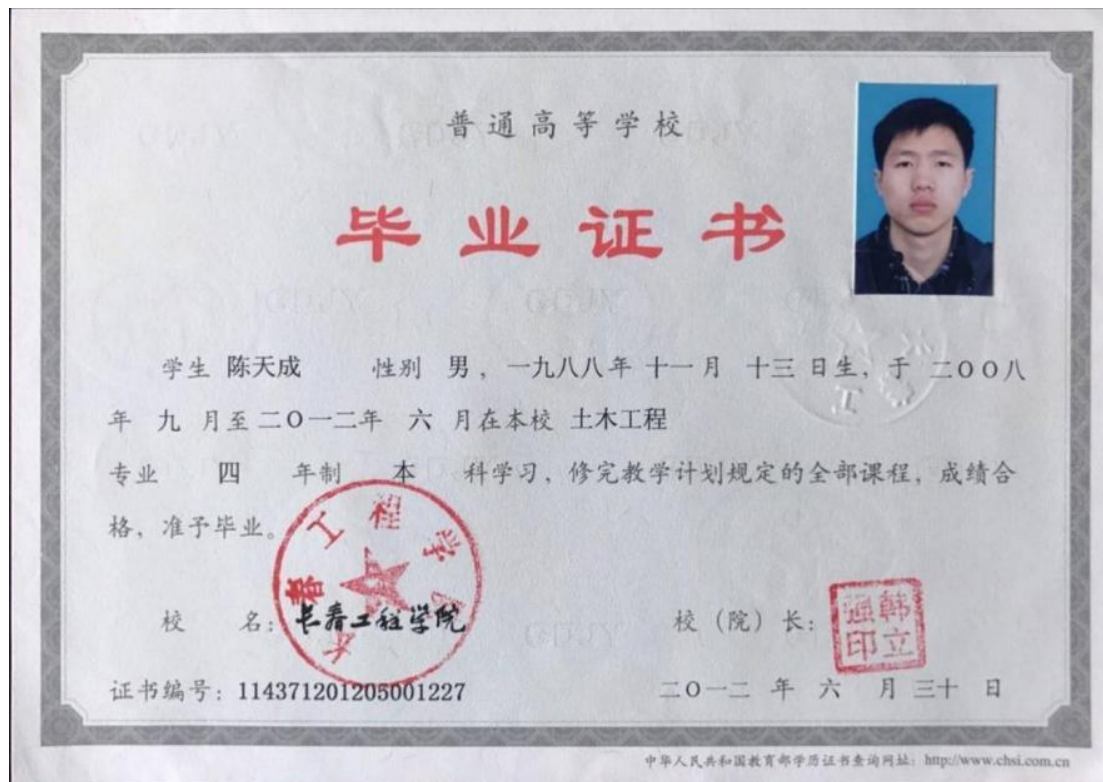 普通高等学校
毕业证书
学生 陈天成 性别 男，一九八八年 十一月 十三 日生，于 二〇〇八
年 九 月至二〇一二年 六 月在本校 土木工程
专业 四 年制 本 科学习，修完教学计划规定的全部课程，成绩合
格，准予毕业。
长春工程学院
校 名：长春工程学院
校（院）长：
韩立
强印
证书编号：114371201205001227
二〇一二 年 六 月 三十 日
中华人民共和国教育部学历证书查询网址：http://www.chsi.com.cn